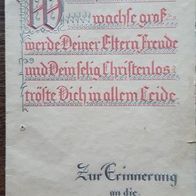 wachse groß
werde Deiner Eltern Freude
und Dein selig Christenlos
tröste Dich in allem Leide.
Zur Erinnerung
an die